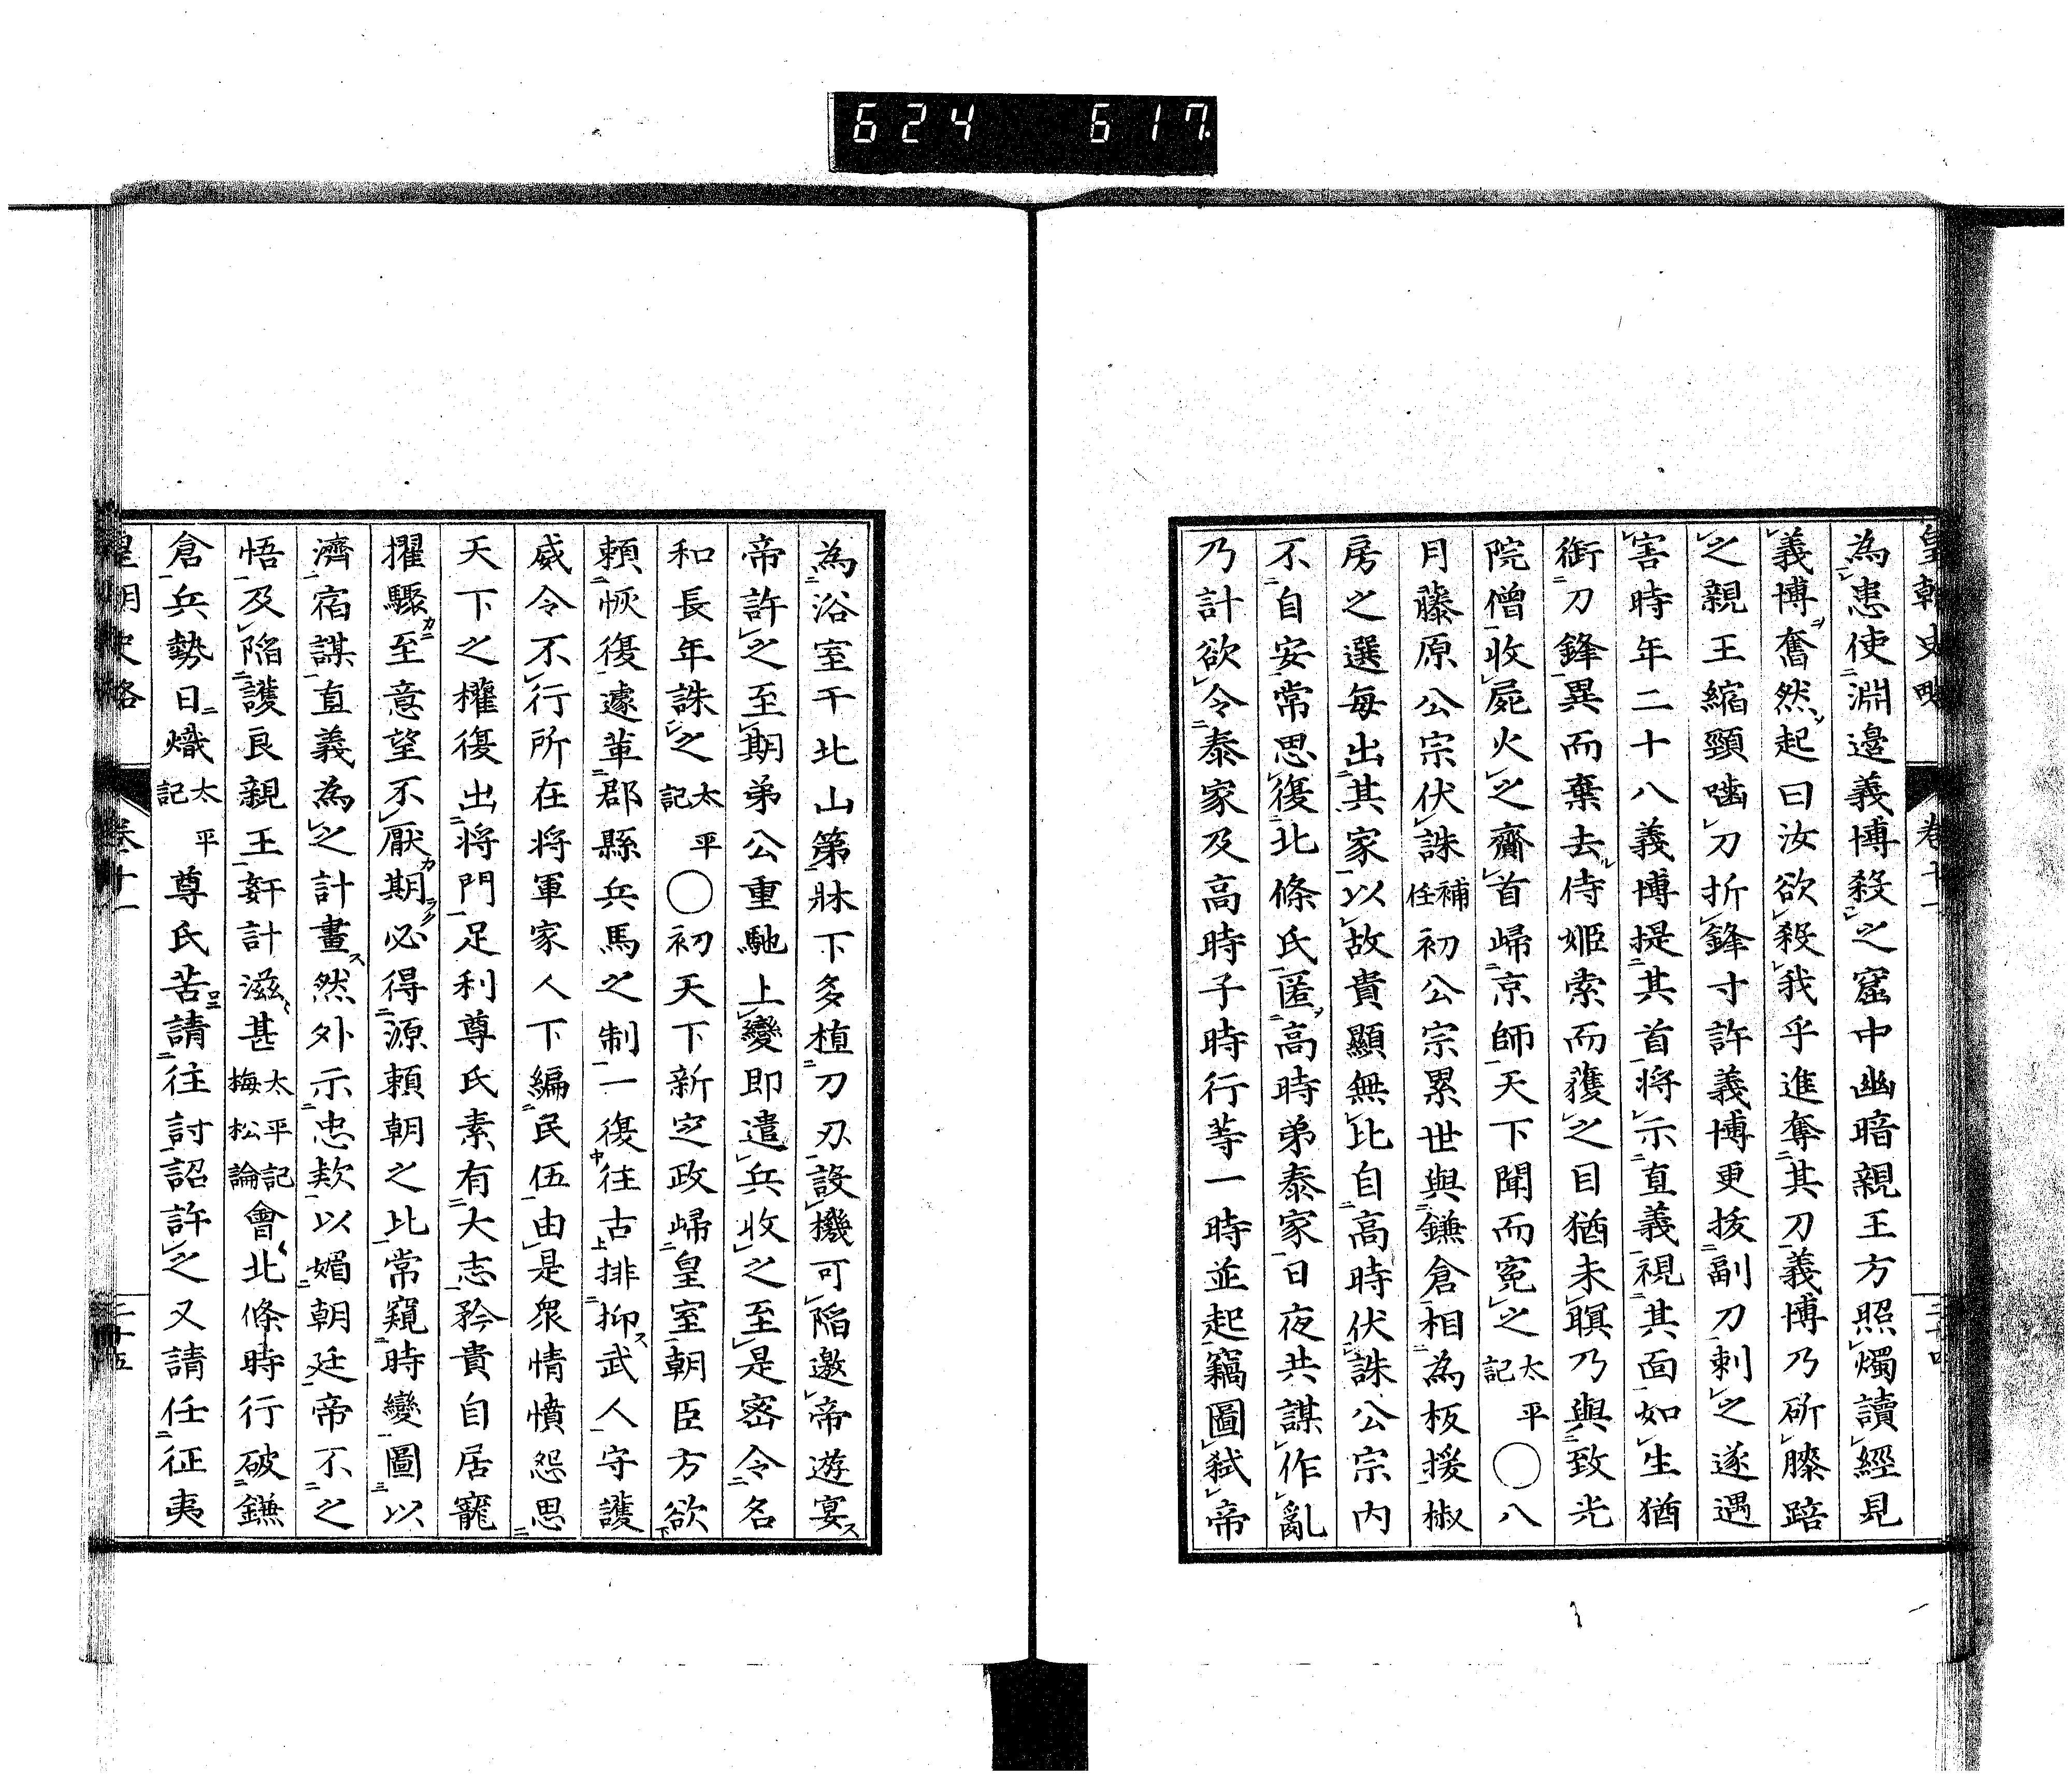 624 617
皇朝史略 卷十一
為患使淵邉義博殺之窟中幽暗親王方照燭讀經見
義博奮然起曰汝欲殺我乎進奪其刀義博乃斫膝踣
之親王縮頸嚙刀折鋒寸許義博更拔副刀刺之遂遇
害時年二十八義博提其首將示直義視其面如生猶
銜刀鋒異而棄去侍姬索而獲之目猶未瞑乃與致光
院僧收屍火之齎首歸京師天下聞而冤之太平記○八
月藤原公宗伏誅補任初公宗累世與鎌倉相為板援椒
房之選每出其家以故貴顯無比自高時伏誅公宗内
不自安常思復北條氏匿高時弟泰家日夜共謀作亂
乃計欲令泰家及高時子時行等一時並起竊圖弑帝
為浴室于北山第牀下多植刀刃設機可陷邀帝遊宴
帝許之至期弟公重馳上變即遣兵收之至是密令名
和長年誅之太平記○初天下新定政歸皇室朝臣方欲
頼恢復遽革郡縣兵馬之制一復往古排抑武人守護
威令不行所在將軍家人下編民伍由是衆情憤怨思
天下之權復出將門足利尊氏素有大志矜貴自居寵
擢驟至意望不厭期必得源頼朝之比常窺時變圖以
濟宿謀直義為之計畫然外示忠款以媚朝廷帝不之
悟及陷護良親王姧計滋甚太平記梅松論會北條時行破鎌
倉兵勢日熾太平記尊氏苦請往討詔許之又請任征夷
皇朝史略 卷十一 二十五